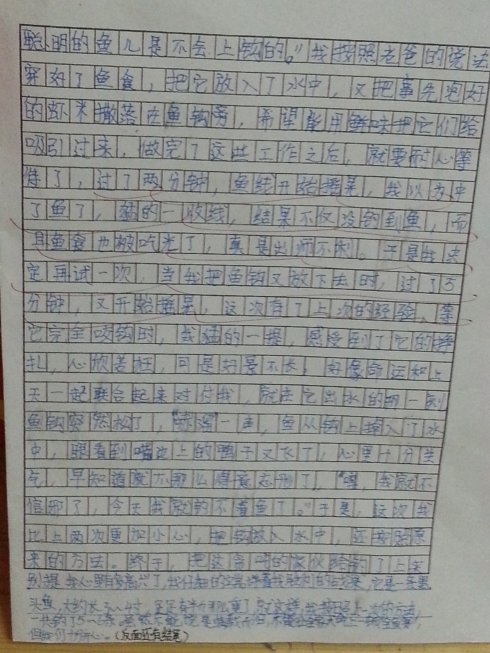 聪明的鱼儿是不会上钩的。”我按照老爸的说法
穿好了鱼食，把它放入了水中，又把事先泡好
的虾米撒落在鱼钩旁，希望能用鲜味把它们给
吸引过来，做完了这些工作之后，就要耐心等
待了，过了两分钟，鱼线开始摇晃，我以为中
了鱼了，猛的一收线，结果不仅没钓到鱼，而
且鱼食也被吃光了，真是出师不利。于是我决
定再试一次，当我把鱼钩又放下去时，过了5
分钟，又开始摇晃，这次有了上次的经验，等
它完全咬钩时，我猛的一提，感授到了它的挣
扎，心欣若狂，可是好景不长，好像命运和上
天一起联合起来对付我，就在它出水的那一刻
鱼钩突然松了，“扑通”一声，鱼从钩上掉入了水
中，眼看到嘴边上的鸭子又飞了，心里十分生
气，早知道就不那么得意忘形了，“哼，我就不
信那了，今天我就钓不着鱼了。”于是，这次我
比上两次更加小心，把钩放入水中，还按照原
来的方法。终于，把这条的家伙给钓了上来
别提我心里有多高兴了，我仔细的，它是一条黑
头鱼，大约长，
但我们十分开心。（反面还有结尾）